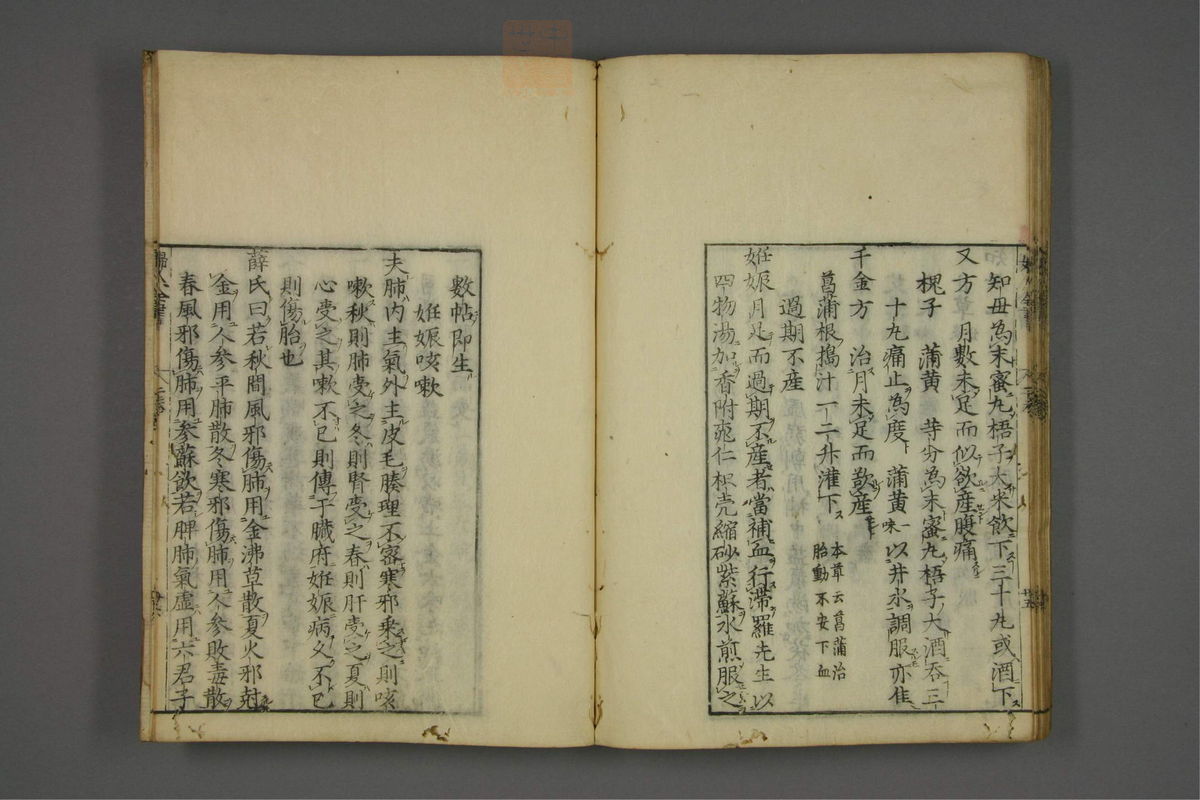 知母為末蜜丸梧子大米飲下三十丸或酒下
又方月數未足而似欲産腹痛
槐子 蒲黄 等分為末蜜丸梧子大酒吞三
十丸痛止為度 蒲黄一味以井水調服亦隹
千金方 治月未足而欲産
菖蒲根搗汁一二升灌下
本草云菖蒲治
胎動不安下血
過期不産
妊娠月足而過期不産者當補血行滯羅先生以
四物湯加香附桃仁枳壳縮砂紫蘇水煎服之
數帖即生
妊娠咳嗽
夫肺内主氣外主皮毛腠理不密寒邪乘之則咳
嗽秋則肺受之冬則腎受之春則肝受之夏則
心受之其嗽不已則傳于臓府妊娠病久不已
則傷胎也
薛氏曰若秋間風邪傷肺用金沸草散夏火邪尅
金用人參平肺散冬寒邪傷肺用人參敗毒散
春風邪傷肺用參蘇飲若脾肺氣虚用六君子